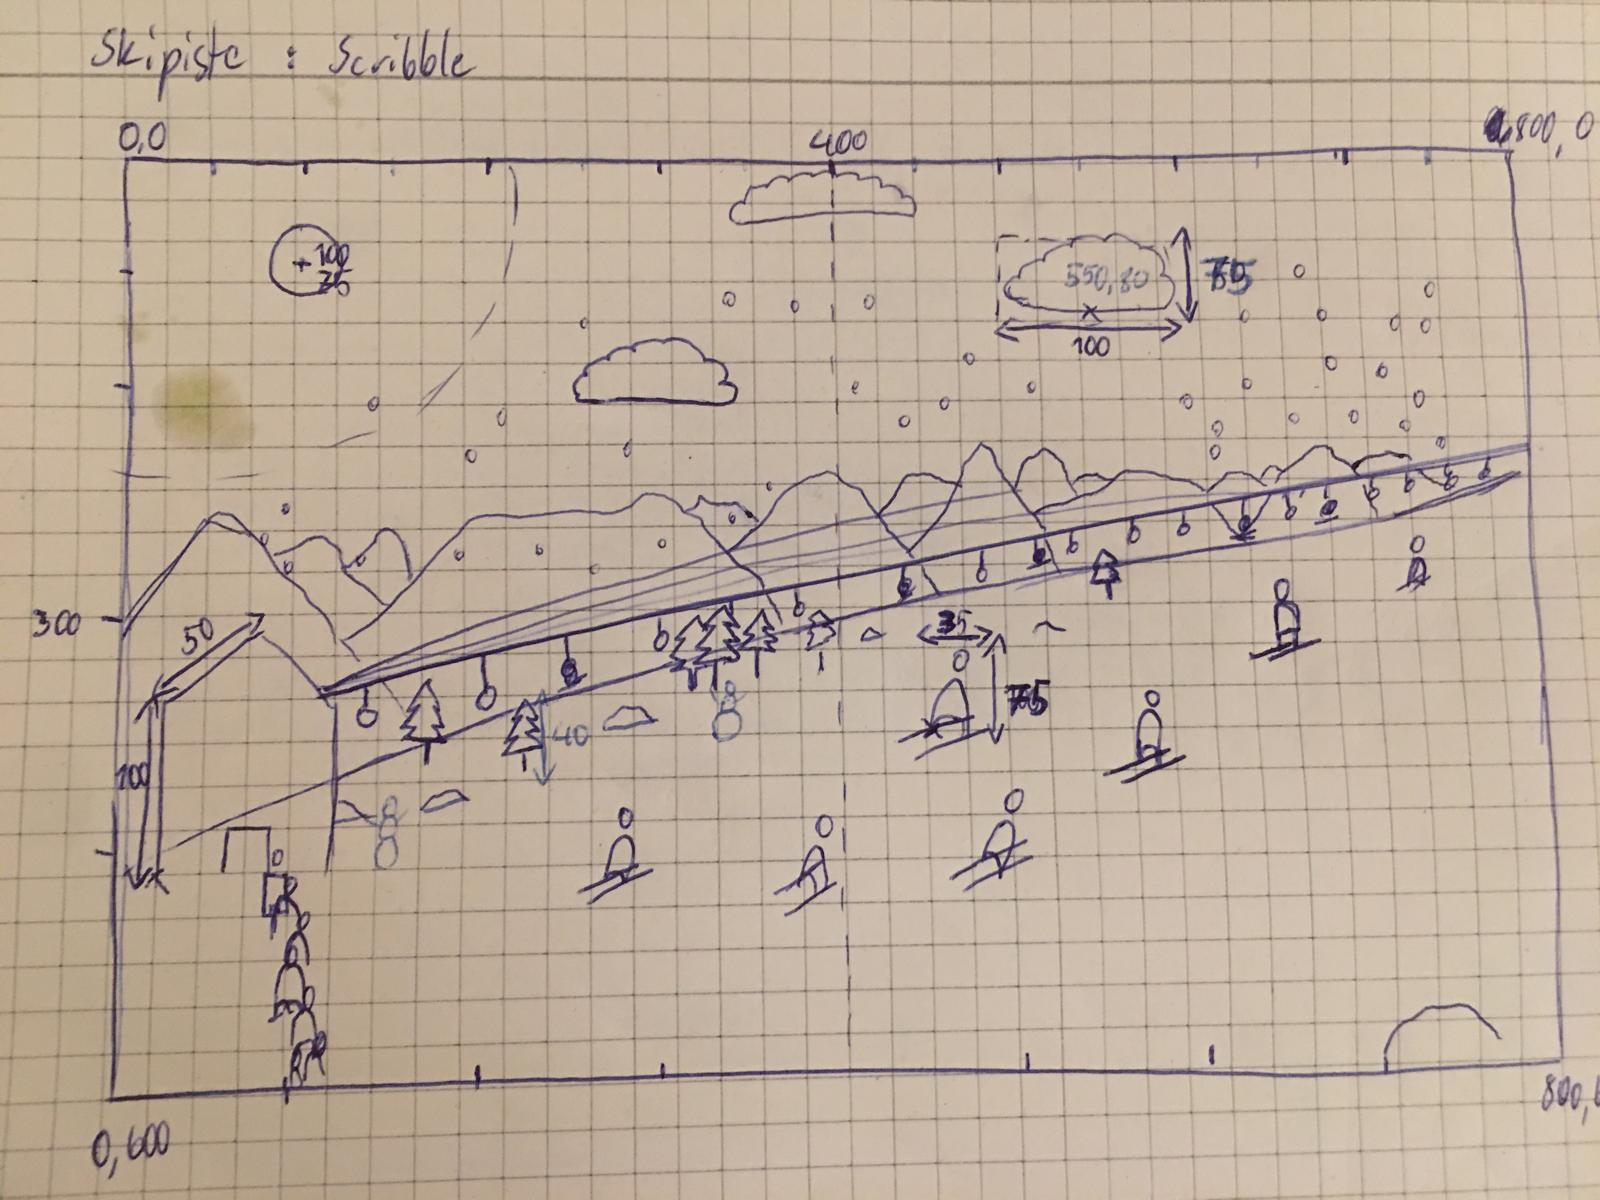 Skipiste : Scribble
0,0
400
800, 0
+ 100
35
550,80
100
300
50
35
40
100
0,600